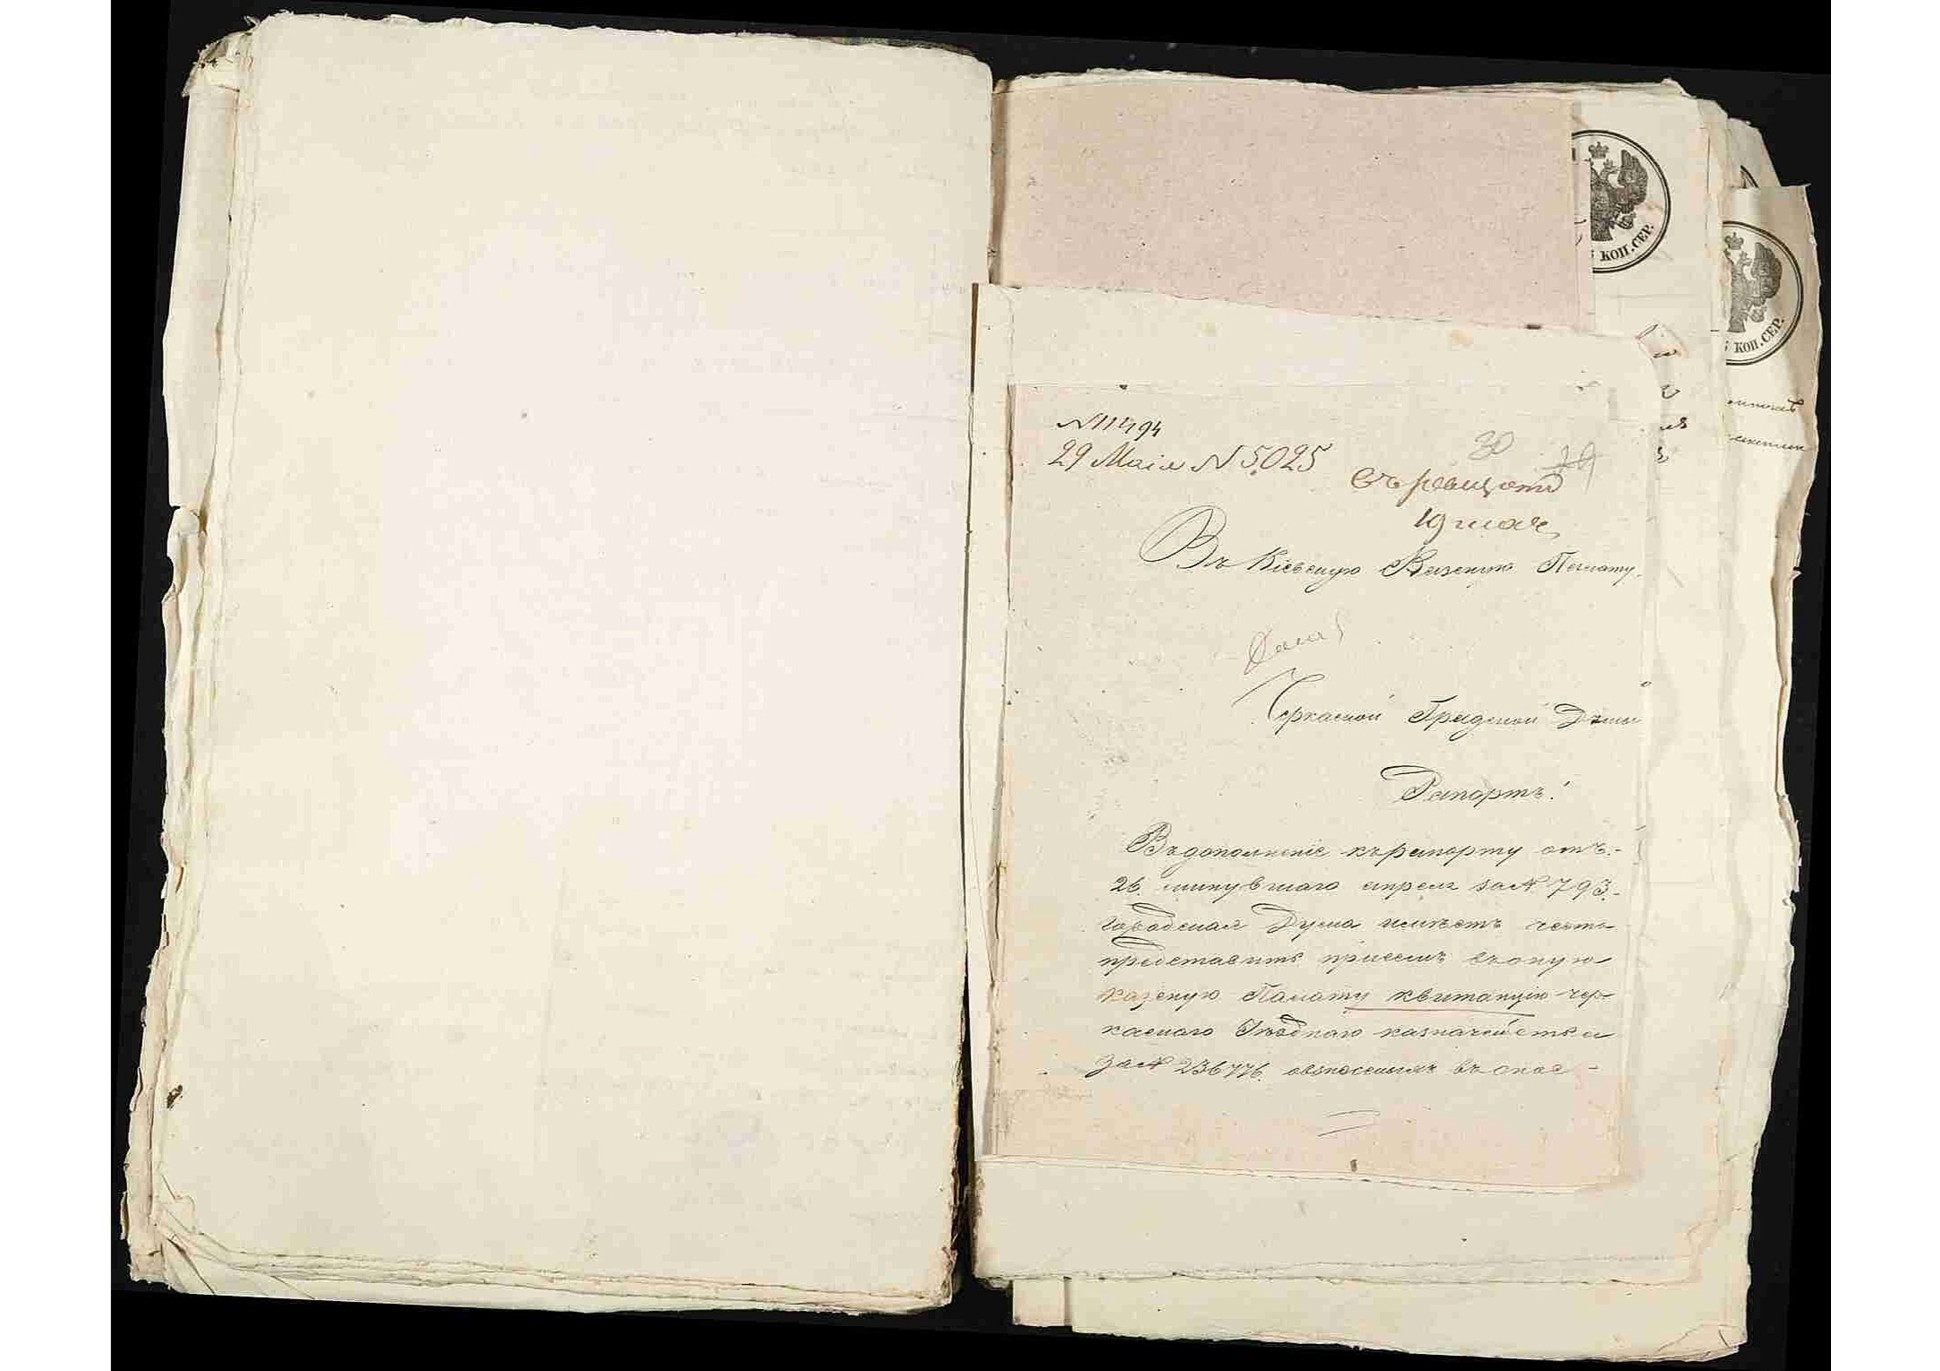 N 11494
29 Маія N 5025
30
19 мая
Въ Кіевскую Казенную Палату.
Черкаской Градской Думы
Рапортъ!
Въ дополненіе къ рапорту отъ
26. минувшаго апреля за N 793.
городская Дума имѣетъ честь
представить присемъ въ оную
казеную Палату квитанцію чер-
каскаго Уѣзднаго казначейства
за N 236776. овзносенныхъ въ оное -
КОП.СЕР.
КОП.СЕР.